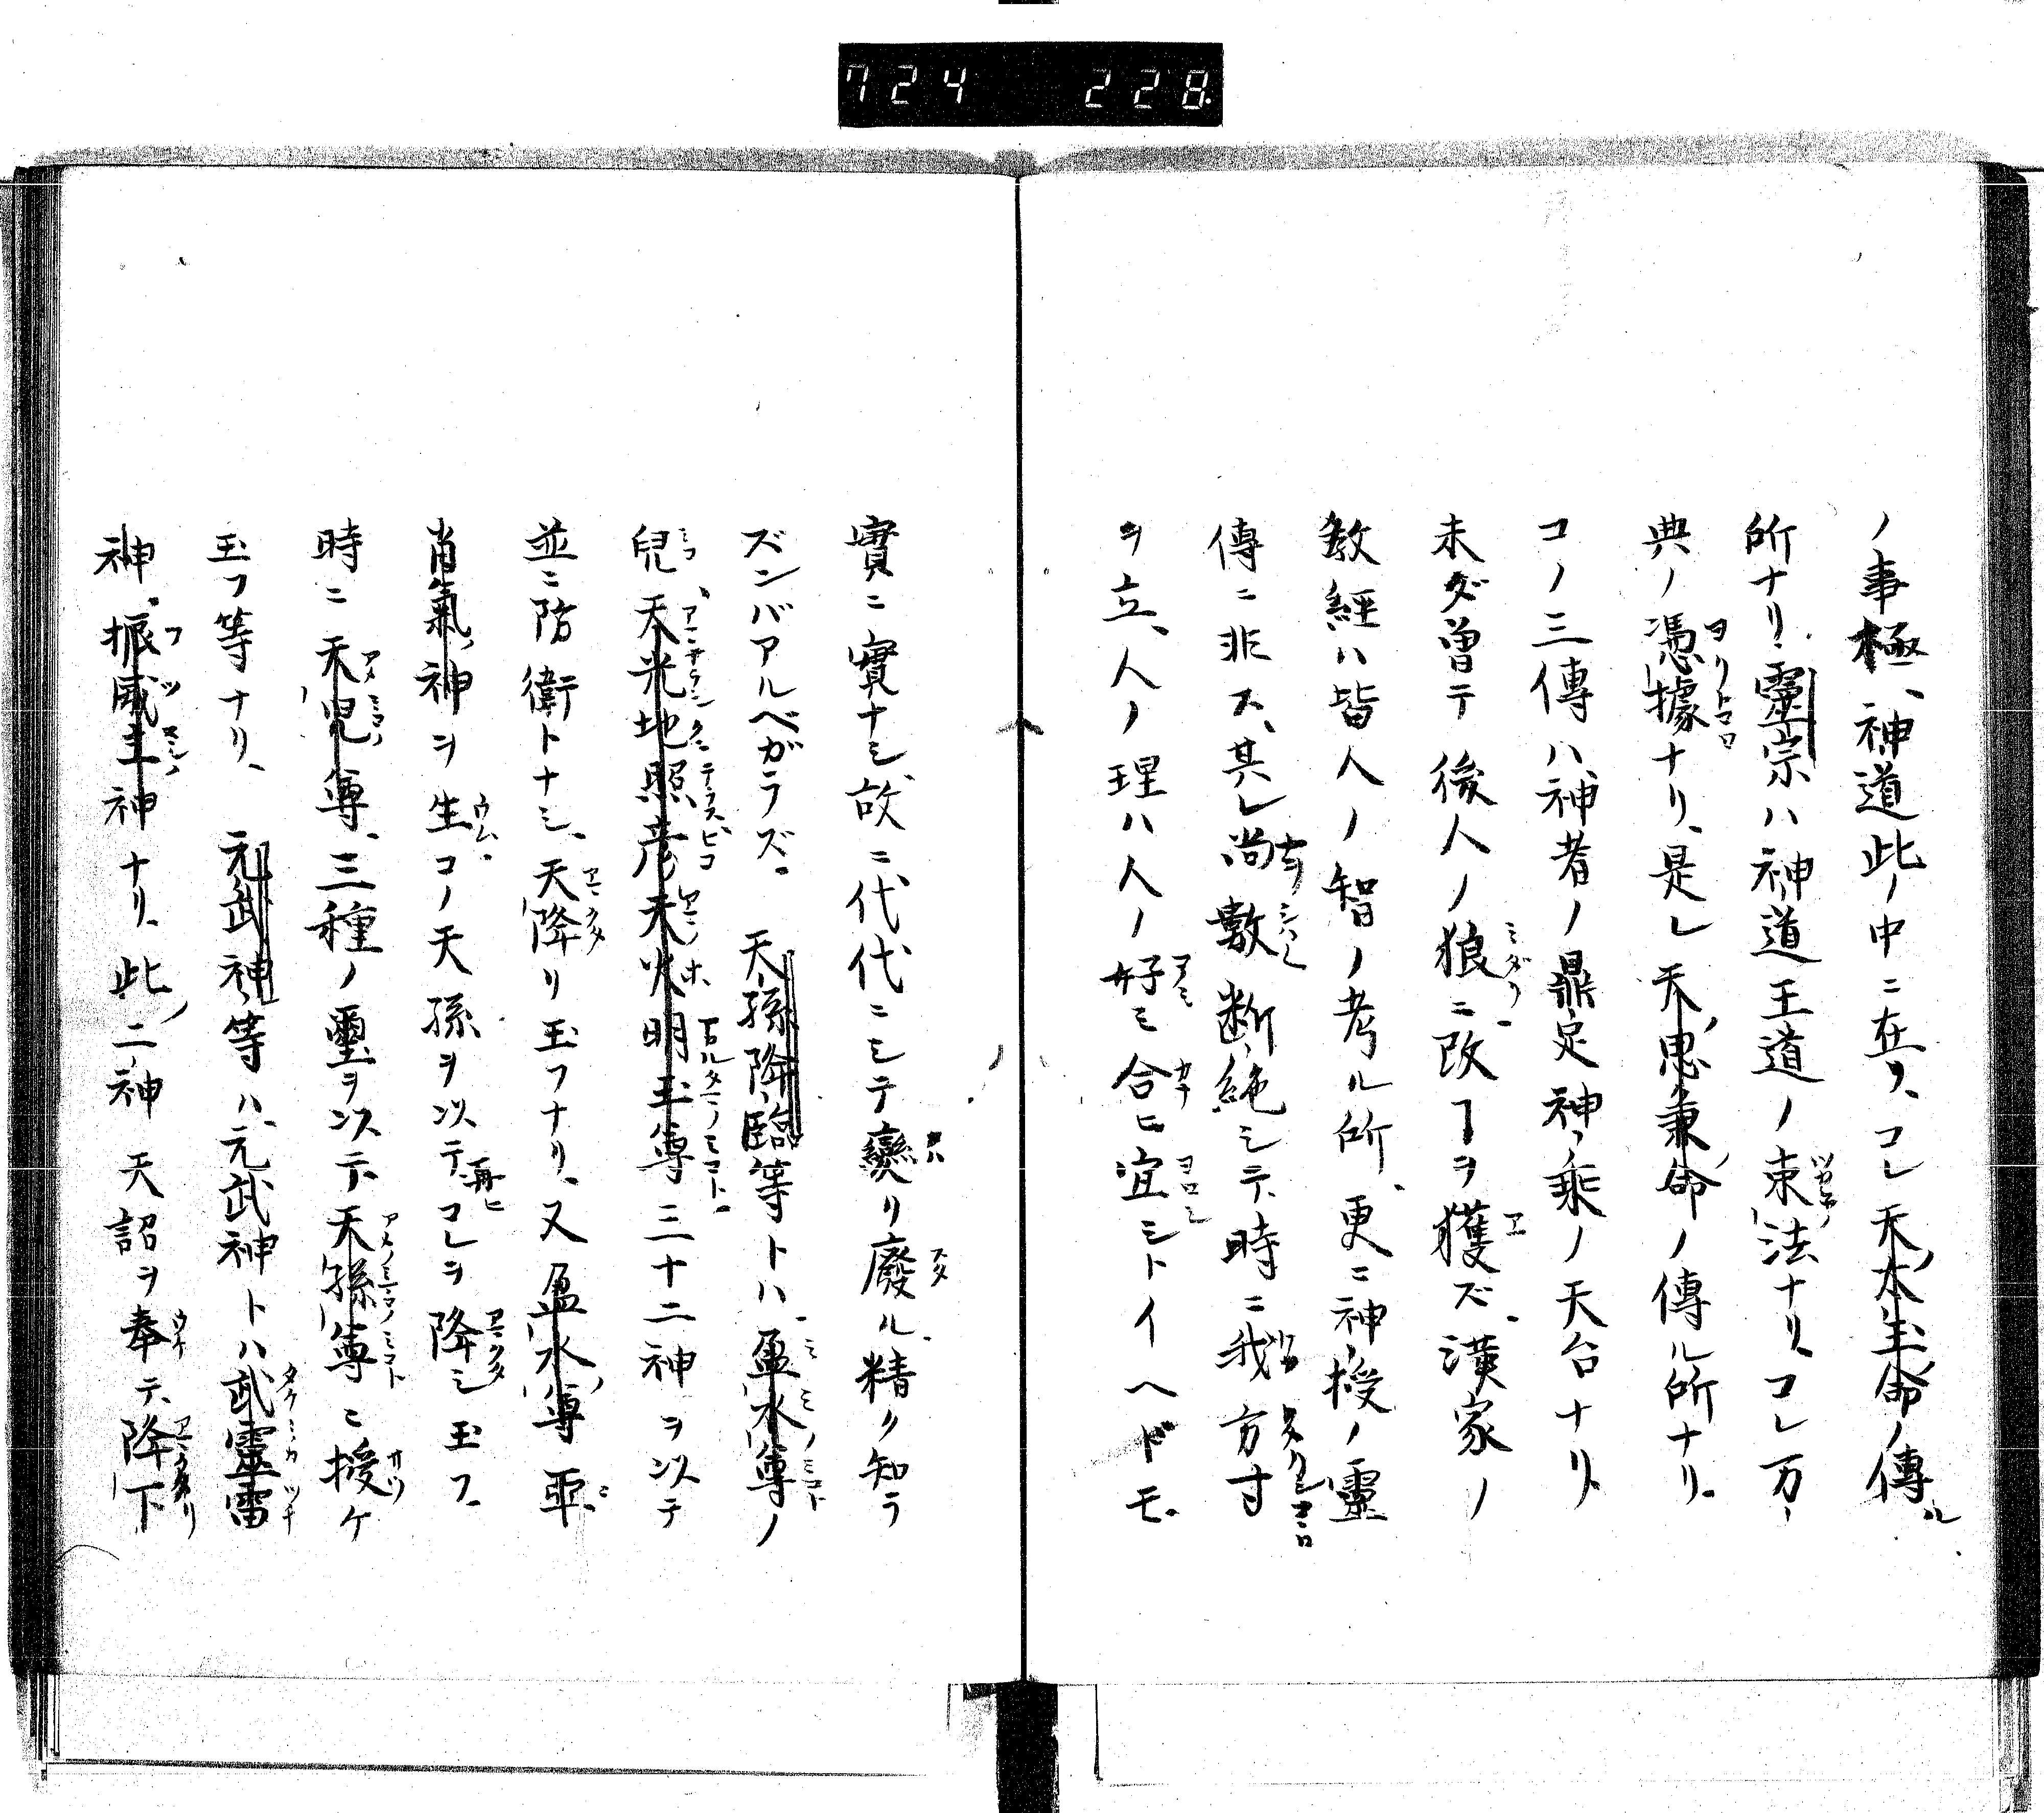 724 228.
ノ事極、神道此ノ中ニ在リ、コレ天太玉命ノ傳ル
所ナリ、靈宗ハ神道王道ノ束法ナリ、コレ万
典ノ憑據ナリ、是レ天思兼命ノ傳ル所ナリ。
コノ三傳ハ神者ノ鼎足神乘ノ天台ナリ、
未ダ曽テ後人ノ狼ニ改ヿヲ獲ズ、漢家ノ
教經ハ皆人ノ智ノ考ル所、更ニ神授ノ靈
傳ニ非ス、其レ尚數断絶シテ、時ニ我方寸
ヲ立、人ノ理ハ人ノ好ミ合ヒ宜シトイヘドモ。
實ニ實ナシ、故ニ代代ニシテ變リ廢ル、精ク知ラ
ズンバアルベガラズ。 天孫降臨等トハ、盈水尊ノ
兒、天光地照彦天火明玉尊三十二神ヲ以テ
並ニ防衛トナシ、天降リ玉フナリ、又盈水尊
肖氣神ヲ生コノ天孫ヲ以テ再ヒコレヲ降シ玉フ、
時ニ天児尊、三種ノ璽ヲ以テ、天孫尊ニ授ケ
玉フ等ナリ、 元武神等ハ、元武神トハ武靈雷
神、振威主神ナリ、此二神天詔ヲ奉テ、降下